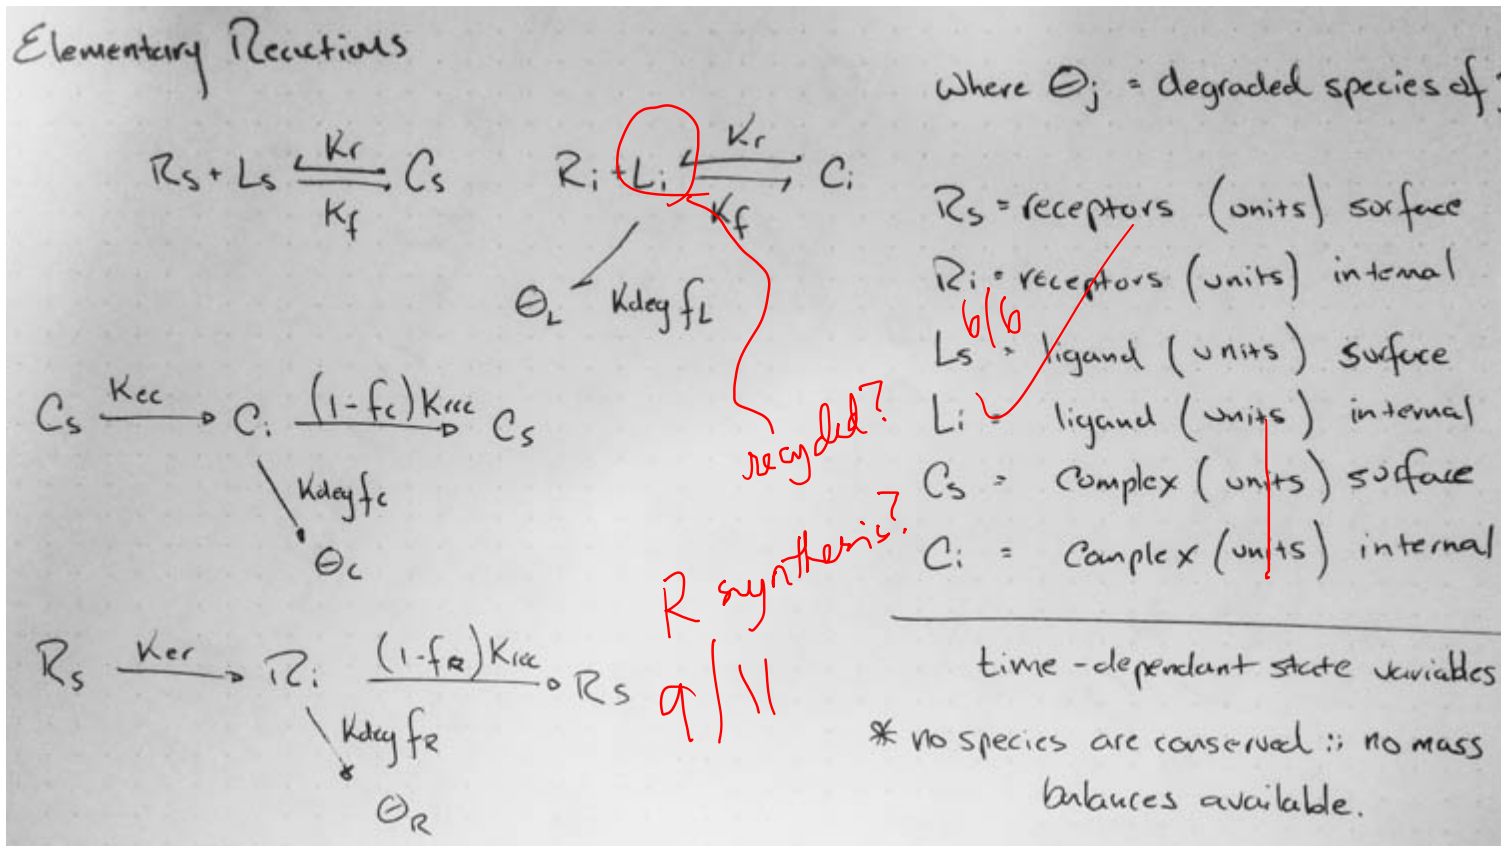 Elementary Reactions
Rs + Ls ⇌ Cs
Kr
Kf
Ri + Li ⇌ Ci
Kr
Kf
ΘL Kdeg fL
Cs Kec → Ci (1-fc)Krec → Cs
Kdeg fc
Θc
Rs Ker → Ri (1-fR)Krec → Rs
Kdeg fR
ΘR
recycled?
R synthesis?
9/11
where Θj = degraded species of
Rs = receptors (units) surface
Ri = receptors (units) internal
6/6
Ls = ligand (units) surface
Li = ligand (units) internal
Cs = Complex (units) surface
Ci = Complex (units) internal
time-dependant state variables
* no species are conserved ∴ no mass
balances available.